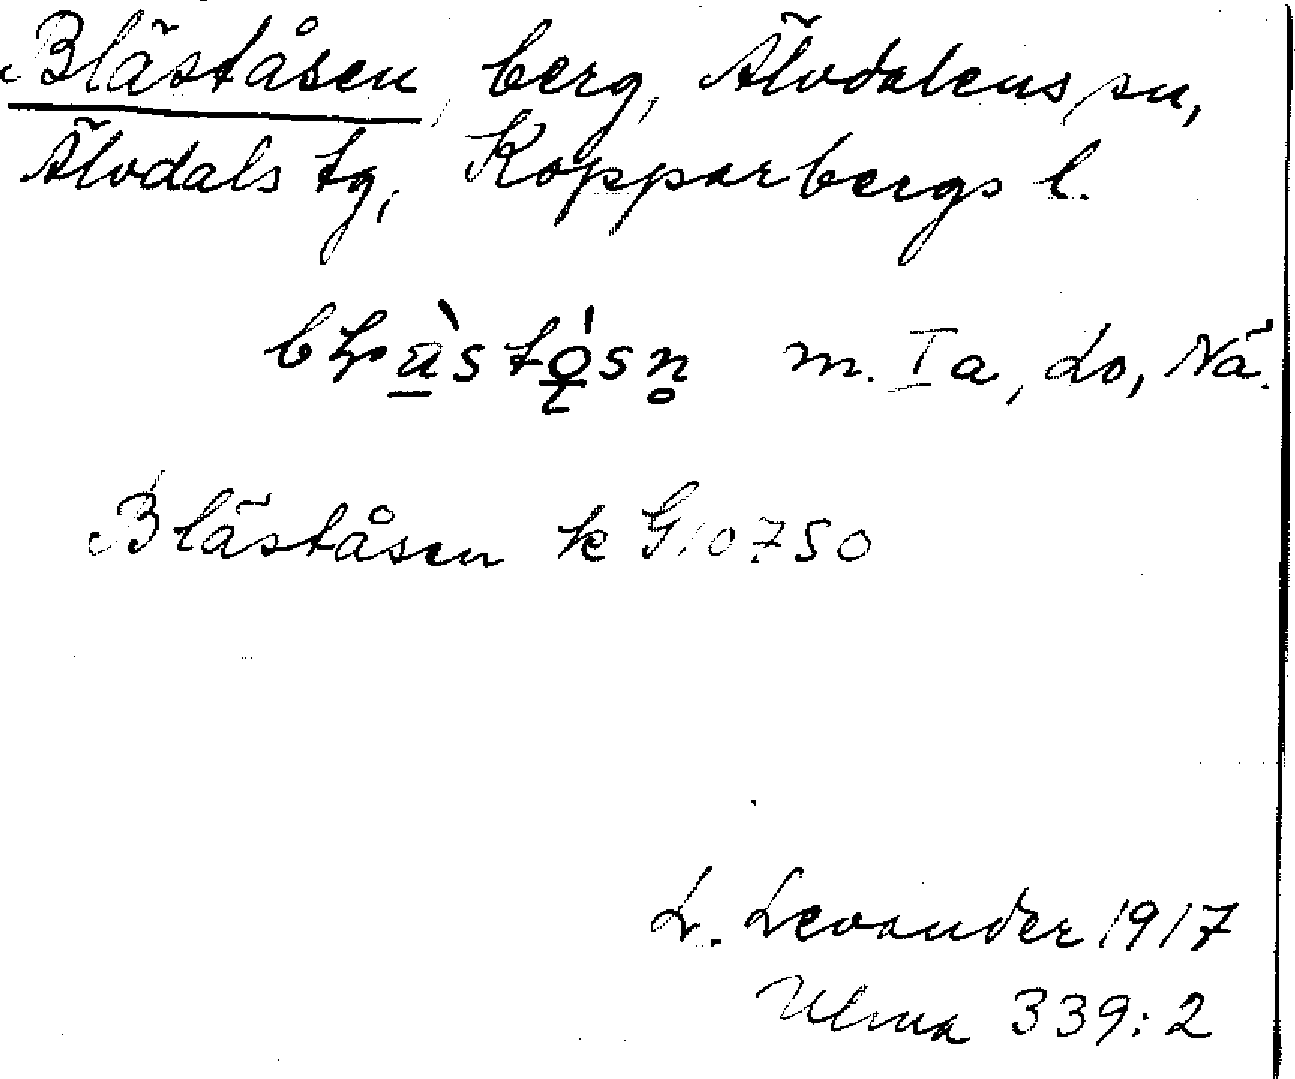 Bläståsen, berg, Älvdalens sn,
Älvdals tg, Kopparbergs l.
m. Ia, Lo, Nä.
Bläståsen k G10750
L. Levander 1917
Ulma 339:2